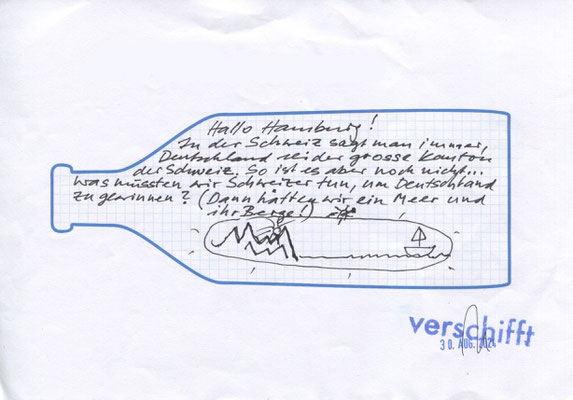 Hallo Hamburg!
In der Schweiz sagt man immer,
Deutschland sei der grosse Kanton
der Schweiz. So ist es aber noch nicht...
Was müssten wir Schweizer tun, um Deutschland
zu gewinnen? (Dann hätten wir ein Meer und
ihr Berge!)
verschifft
30. AUG. 202